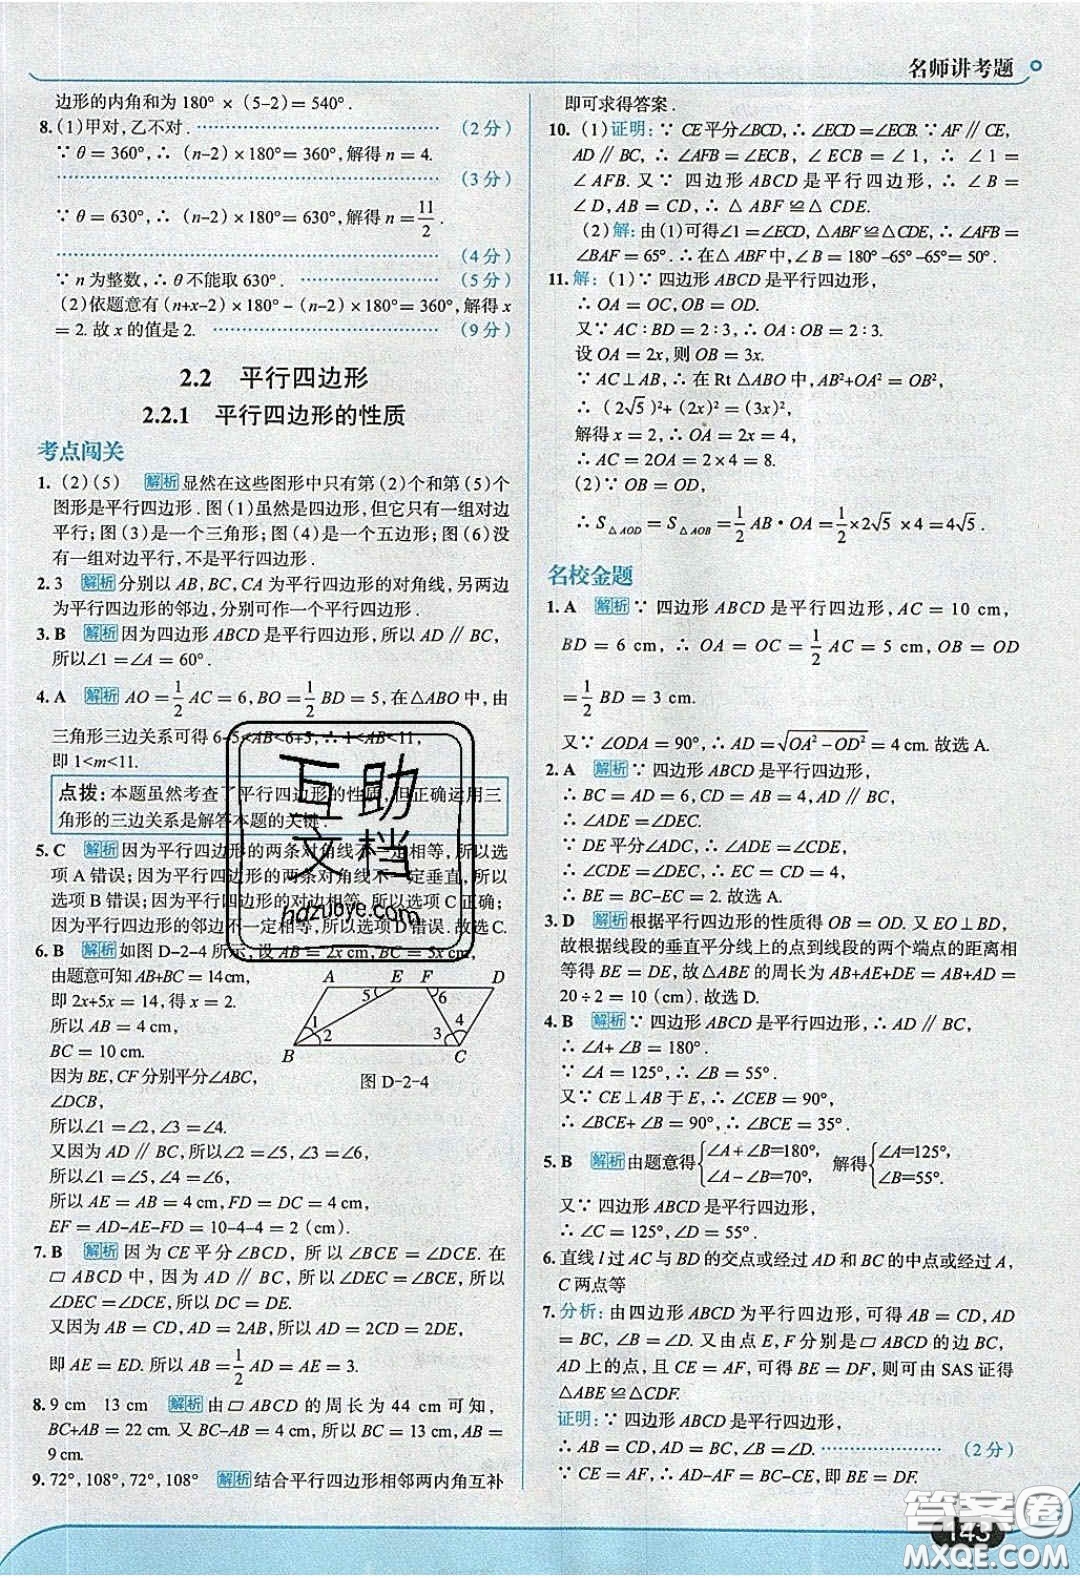 名师讲考题
边形的内角和为180° ×（5-2）= 540°.
8.（1）甲对，乙不对. （2分）
∵ θ = 360°，∴（n-2）×180°= 360°，解得 n = 4.
（3分）
∵ θ = 630°，∴（n-2）×180°= 630°，解得 n = 11/2.
（4分）
∵ n 为整数，∴ θ 不能取 630°. （5分）
（2）依题意有（n+x-2）×180°-（n-2）×180°= 360°，解得 x
= 2. 故 x 的值是 2. （9分）
2.2 平行四边形
2.2.1 平行四边形的性质
考点闯关
1.（2）（5） 解析 显然在这些图形中只有第（2）个和第（5）个
图形是平行四边形. 图（1）虽然是四边形，但它只有一组对边
平行；图（3）是一个三角形；图（4）是一个五边形；图（6）没
有一组对边平行，不是平行四边形.
2. 3 解析 分别以 AB，BC，CA 为平行四边形的对角线，另两边
为平行四边形的邻边，分别可作一个平行四边形.
3. B 解析 因为四边形 ABCD 是平行四边形，所以 AD∥BC，
所以∠1 =∠A = 60°.
4. A 解析 AO = 1/2 AC = 6，BO = 1/2 BD = 5，在△ABO 中，由
三角形三边关系可得 6-5<AB<6+5，∴ 1<AB<11，
即 1<m<11.
点拨：本题虽然考查了平行四边形的性质，但正确运用三
角形的三边关系是解答本题的关键.
5. C 解析 因为平行四边形的两条对角线不一定相等，所以选
项 A 错误；因为平行四边形的两条对角线不一定垂直，所以
选项 B 错误；因为平行四边形的对边相等，所以选项 C 正确；
因为平行四边形的邻边不一定相等，所以选项 D 错误. 故选 C.
6. B 解析 如图 D-2-4 所示，设 AB = 2x cm，BC = 5x cm，
由题意可知 AB+BC = 14 cm，
即 2x+5x = 14，得 x = 2.
所以 AB = 4 cm，
BC = 10 cm.
因为 BE，CF 分别平分∠ABC，
∠DCB，
A E F D
5 6
1 2 3 4
B C
图 D-2-4
所以∠1 =∠2，∠3 =∠4.
又因为 AD∥BC，所以∠2 =∠5，∠3 =∠6，
所以∠1 =∠5，∠4 =∠6.
所以 AE = AB = 4 cm，FD = DC = 4 cm，
EF = AD-AE-FD = 10-4-4 = 2（cm）.
7. B 解析 因为 CE 平分∠BCD，所以∠BCE =∠DCE. 在
▱ABCD 中，因为 AD∥BC，所以∠DEC =∠BCE，所以
∠DEC =∠DCE，所以 DC = DE.
又因为 AB = CD，AD = 2AB，所以 AD = 2CD = 2DE，
即 AE = ED. 所以 AB = 1/2 AD = AE = 3.
8. 9 cm 13 cm 解析 由▱ABCD 的周长为 44 cm 可知，
BC+AB = 22 cm. 又 BC-AB = 4 cm，则 BC = 13 cm，AB =
9 cm.
9. 72°，108°，72°，108° 解析 结合平行四边形相邻两内角互补
即可求得答案.
10.（1）证明：∵ CE平分∠BCD，∴∠ECD=∠ECB. ∵ AF∥CE，
AD∥BC，∴ ∠AFB = ∠ECB，∠ECB = ∠1，∴ ∠1 =
∠AFB. 又∵ 四边形 ABCD 是平行四边形，∴ ∠B =
∠D，AB = CD，∴ △ABF≌△CDE.
（2）解：由（1）可得∠1 =∠ECD，△ABF≌△CDE，∴∠AFB=
∠BAF= 65°. ∴ 在△ABF 中，∠B = 180°-65°-65°= 50°.
11. 解：（1）∵ 四边形 ABCD 是平行四边形，
∴ OA = OC，OB = OD.
又∵ AC∶BD = 2∶3，∴ OA∶OB = 2∶3.
设 OA = 2x，则 OB = 3x.
∵ AC⊥AB，∴ 在 Rt△ABO 中，AB²+OA² = OB²，
∴（2√5）²+（2x）² =（3x）²，
解得 x = 2，∴ OA = 2x = 4，
∴ AC = 2OA = 2×4 = 8.
（2）∵ OB = OD，
∴ S△AOD = S△AOB = 1/2 AB·OA = 1/2 × 2√5 ×4 = 4√5.
名校金题
1. A 解析 ∵ 四边形 ABCD 是平行四边形，AC = 10 cm，
BD = 6 cm，∴ OA = OC = 1/2 AC = 5 cm，OB = OD
= 1/2 BD = 3 cm.
又∵ ∠ODA = 90°，∴ AD = √(OA²-OD²) = 4 cm. 故选 A.
2. A 解析 ∵ 四边形 ABCD 是平行四边形，
∴ BC = AD = 6，CD = AB = 4，AD∥BC，
∴ ∠ADE = ∠DEC.
∵ DE 平分∠ADC，∴ ∠ADE =∠CDE，
∴ ∠DEC =∠CDE，∴ EC = CD = 4，
∴ BE = BC-EC = 2. 故选 A.
3. D 解析 根据平行四边形的性质得 OB = OD. 又 EO⊥BD，
故根据线段的垂直平分线上的点到线段的两个端点的距离相
等得 BE = DE，故△ABE 的周长为 AB+AE+DE = AB+AD =
20÷2 = 10（cm）. 故选 D.
4. B 解析 ∵ 四边形 ABCD 是平行四边形，∴ AD∥BC，
∴ ∠A+ ∠B = 180°.
∵ ∠A = 125°，∴ ∠B = 55°.
又∵ CE⊥AB 于 E，∴ ∠CEB = 90°，
∴ ∠BCE+ ∠B = 90°，∴ ∠BCE = 35°.
5. B 解析 由题意得{∠A+∠B=180°，∠A-∠B=70°， 解得{∠A=125°，∠B=55°.
又∵ 四边形 ABCD 是平行四边形，
∴ ∠C = 125°，∠D = 55°.
6. 直线 l 过 AC 与 BD 的交点或经过 AD 和 BC 的中点或经过 A，
C 两点等
7. 分析：由四边形 ABCD 为平行四边形，可得 AB = CD，AD
= BC，∠B =∠D. 又由点 E，F 分别是▱ABCD 的边 BC，
AD 上的点，且 CE = AF，可得 BE = DF，则可由 SAS 证得
△ABE≌△CDF.
证明：∵ 四边形 ABCD 是平行四边形，
∴ AB = CD，AD = BC，∠B =∠D. （2分）
∵ CE = AF，∴ AD-AF = BC-CE，即 BE = DF.
143
互助
文档
hdzuoye.com
答案圈
MXQE.COM